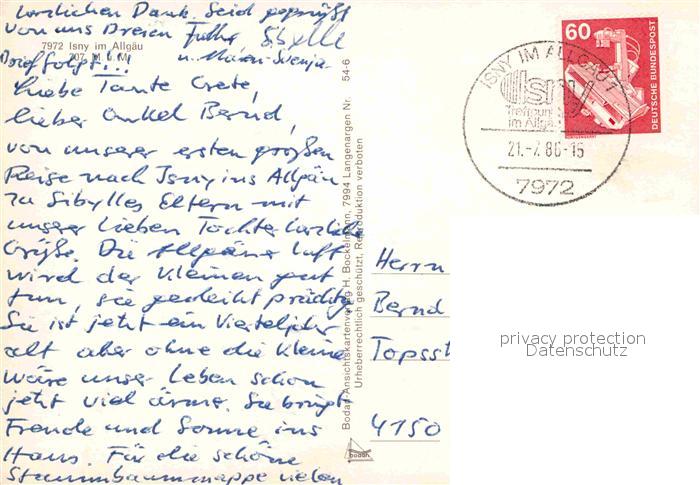 herzlichen Dank. Seid gegrüßt
von uns Dreien Sibylle
7972 Isny im Allgäu
u. Maren-Svenja
Brief folgt!!!
Liebe Tante Grete,
lieber Onkel Bernd,
von unserer ersten großen
Reise nach Isny ins Allgäu
zu Sibylles Eltern mit
unserer lieben Tochter herzliche
Grüße. Die Allgäuer Luft
wird der Kleinen gut
tun, sie gedeiht prächtig
Sie ist jetzt ein Vierteljahr
alt aber ohne die Kleine
wäre unser Leben schon
jetzt viel ärmer. Sie bringt
Freude und Sonne ins
Haus. Für die schöne
Stammbaummappe vielen
54-6
Bodan-Ansichtskartenverlag H. Bockelmann, 7994 Langenargen Nr.
Urheberrechtlich geschützt, Reproduktion verboten
bodan
60
DEUTSCHE BUNDESPOST
ISNY IM ALLGÄU 1
Isny
Treffpunkt
im Allgäu
21.-7.86-15
7972
Herrn
Bernd
Topsst
4150
privacy protection
Datenschutz